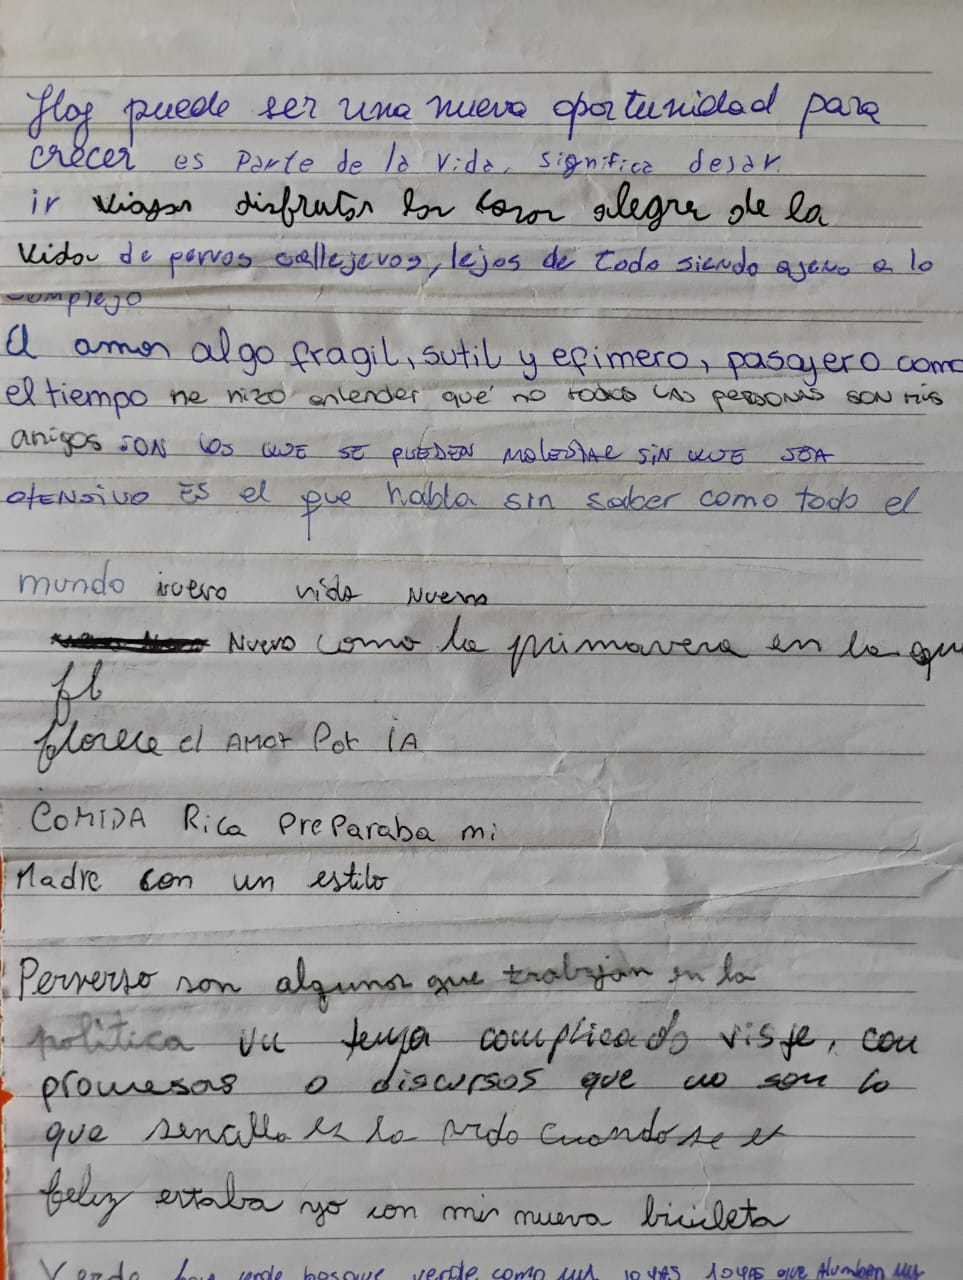 Hoy puede ser una nueva oportunidad para
crecer es parte de la vida, significa dejar
ir viajar disfrutar las cosas alegre de la
vida de perros callejeros, lejos de todo siendo ajeno a lo
complejo
El amor algo fragil, sutil y efimero, pasajero como
el tiempo me hizo entender que no todas las personas son mis
amigos son los que se pueden molestar sin que sea
ofensivo es el que habla sin saber como todo el
mundo nuevo vida nueva
Nuevo como la primavera en la que
fl
florece el amor por la
comida rica preparaba mi
Madre con un estilo
Perverso son algunos que trabajan en la
política un tema complicado viste, con
promesas o discursos que no son lo
que sencilla es la vida cuando se es
feliz estaba yo con mi nueva bicicleta
Verde bosque verde como joyas que alumbran